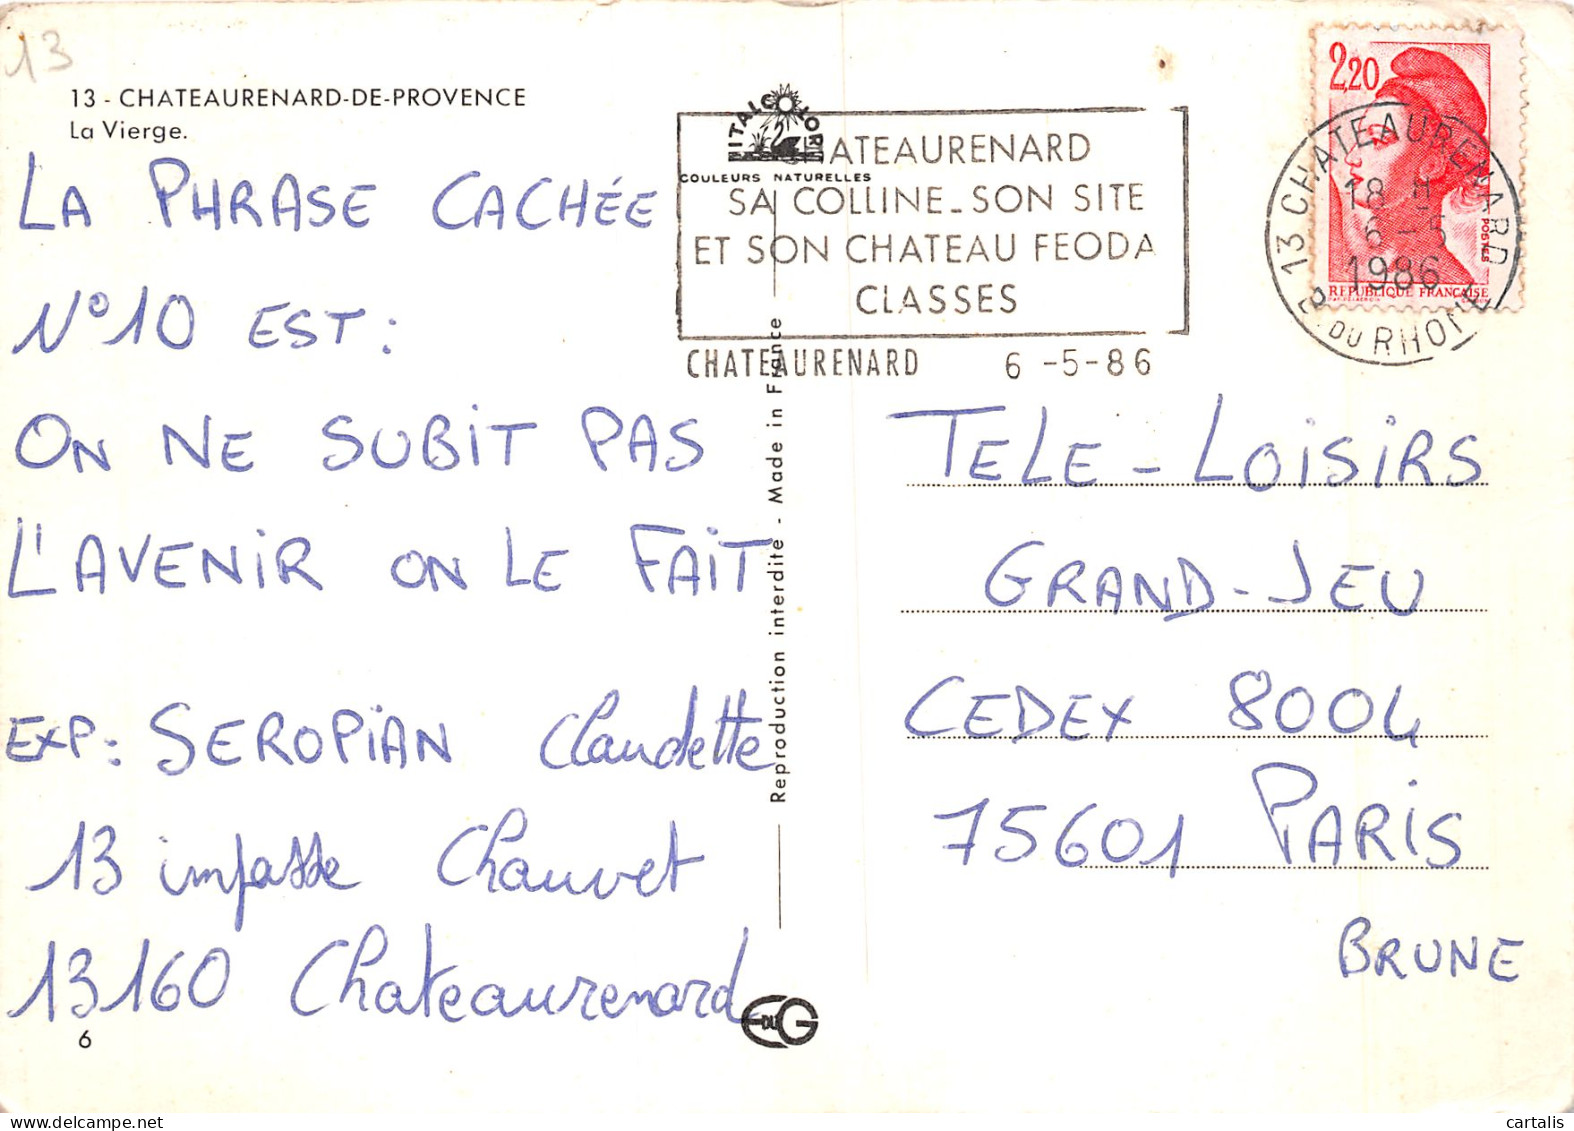 13
13 - CHATEAURENARD-DE-PROVENCE
La Vierge.
LA PHRASE CACHÉE
N°10 EST :
ON NE SUBIT PAS
L'AVENIR ON LE FAIT
EXP : SEROPIAN Claudette
13 impasse Chauvet
13160 Chateaurenard
6
VITALCOLOR
COULEURS NATURELLES
HATEAURENARD
SA COLLINE_SON SITE
ET SON CHATEAU FEODA
CLASSES
CHATEAURENARD 6 -5-86
Reproduction interdite - Made in France
EDUG
2,20
POSTES
REPUBLIQUE FRANÇAISE
13 CHATEAURENARD
18 H
6 - 5
1986
B. DU RHONE
TELE - LOISIRS
GRAND-JEU
CEDEX 8004
75601 PARIS
BRUNE
cartalis